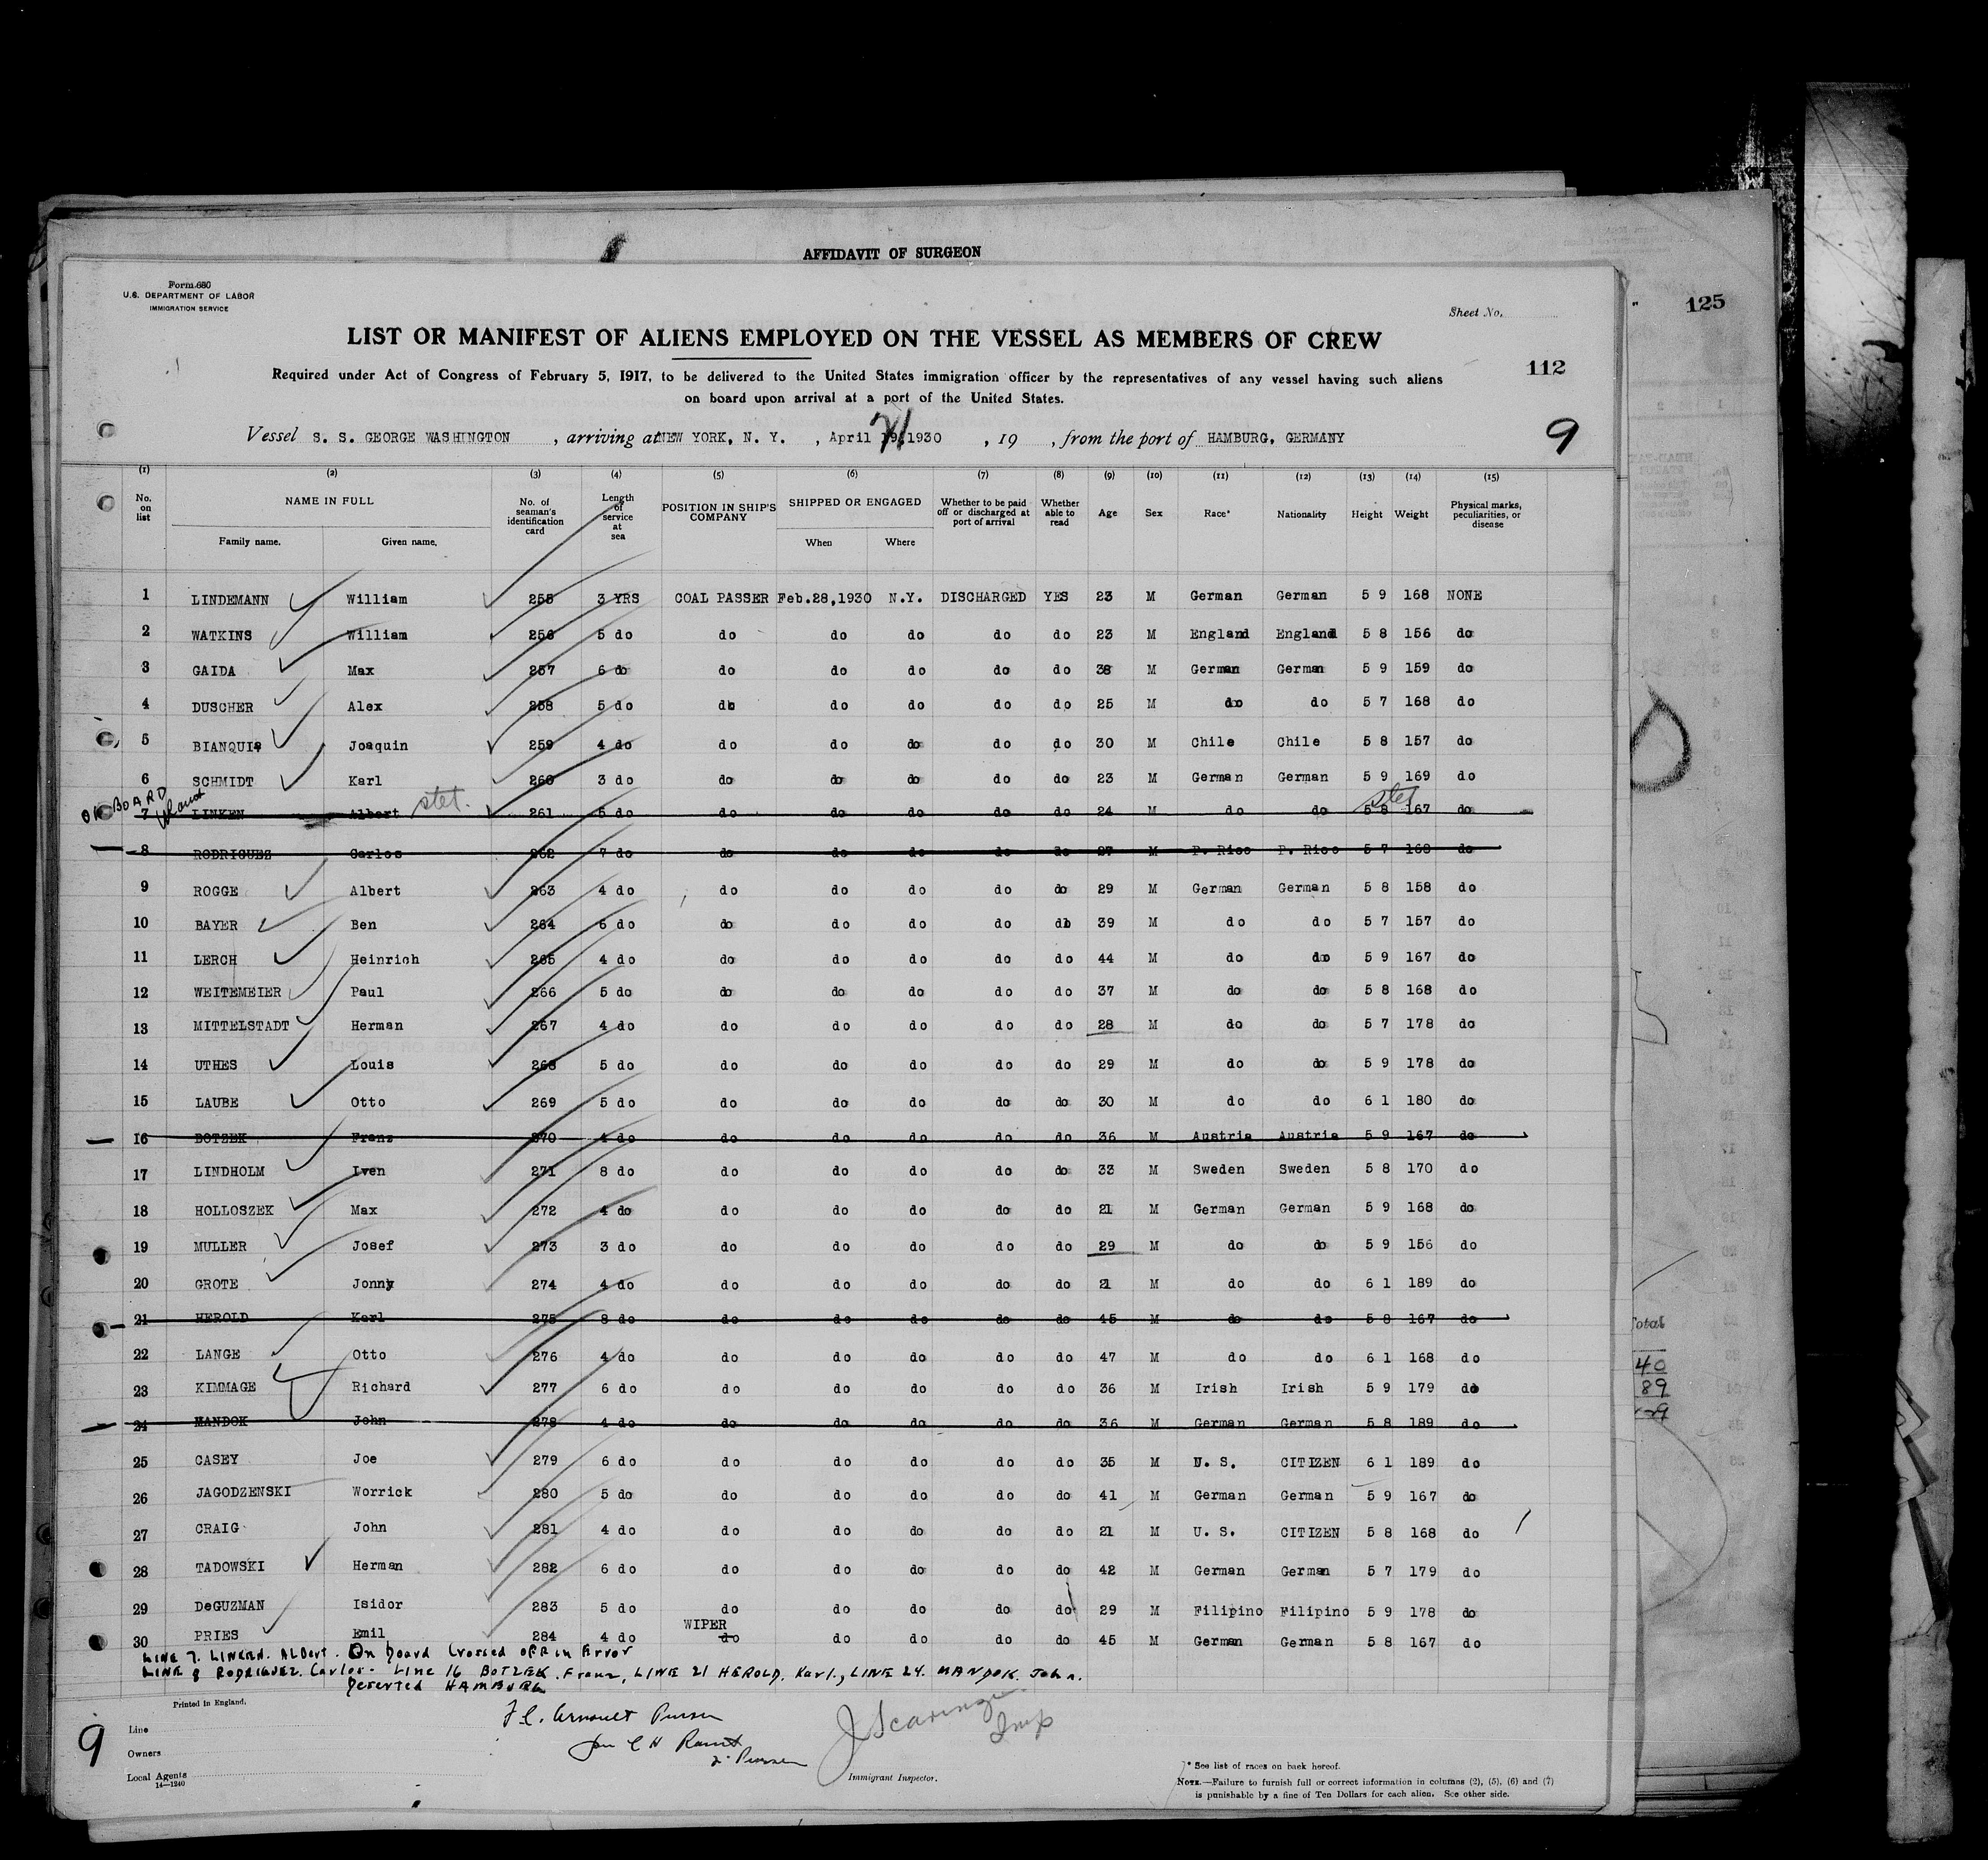 AFFIDAVIT OF SURGEON
Form 680
U.S. DEPARTMENT OF LABOR
IMMIGRATION SERVICE
Sheet No.
125
LIST OR MANIFEST OF ALIENS EMPLOYED ON THE VESSEL AS MEMBERS OF CREW
112
Required under Act of Congress of February 5, 1917, to be delivered to the United States immigration officer by the representatives of any vessel having such aliens
on board upon arrival at a port of the United States.
Vessel S. S. GEORGE WASHINGTON , arriving at NEW YORK, N. Y. , April 19,1930 21 , 19 , from the port of HAMBURG, GERMANY 9
(1) (2) (3) (4) (5) (6) (7) (8) (9) (10) (11) (12) (13) (14) (15)
No. on list NAME IN FULL Family name. Given name. No. of seaman's identification card Length of service at sea POSITION IN SHIP'S COMPANY SHIPPED OR ENGAGED When Where Whether to be paid off or discharged at port of arrival Whether able to read Age Sex Race* Nationality Height Weight Physical marks, peculiarities, or disease
1 LINDEMANN William 255 3 YRS COAL PASSER Feb.28,1930 N.Y. DISCHARGED YES 23 M German German 5 9 168 NONE
2 WATKINS William 256 5 do do do do do do 23 M England England 5 8 156 do
3 GAIDA Max 257 6 do do do do do do 38 M German German 5 9 159 do
4 DUSCHER Alex 258 5 do do do do do do 25 M do do 5 7 168 do
5 BIANQUIS Joaquin 259 4 do do do do do do 30 M Chile Chile 5 8 157 do
6 SCHMIDT Karl 260 3 do do do do do do 23 M German German 5 9 169 do
ON BOARD
7 LINKEN Albert stet. 261 5 do do do do do do 24 M do do 5 8 167 do stet
8 RODRIGUEZ Carlos 262 7 do do do do do do 27 M P. Rico P. Rico 5 7 168 do
9 ROGGE Albert 263 4 do do do do do do 29 M German German 5 8 158 do
10 BAYER Ben 264 6 do do do do do do 39 M do do 5 7 157 do
11 LERCH Heinrich 265 4 do do do do do do 44 M do do 5 9 167 do
12 WEITEMEIER Paul 266 5 do do do do do do 37 M do do 5 8 168 do
13 MITTELSTADT Herman 267 4 do do do do do do 28 M do do 5 7 178 do
14 UTHES Louis 268 5 do do do do do do 29 M do do 5 9 178 do
15 LAUBE Otto 269 5 do do do do do do 30 M do do 6 1 180 do
16 BOTZEK Franz 270 4 do do do do do do 36 M Austria Austria 5 9 167 do
17 LINDHOLM Iven 271 8 do do do do do do 33 M Sweden Sweden 5 8 170 do
18 HOLLOSZEK Max 272 4 do do do do do do 21 M German German 5 9 168 do
19 MULLER Josef 273 3 do do do do do do 29 M do do 5 9 156 do
20 GROTE Jonny 274 4 do do do do do do 21 M do do 6 1 189 do
21 HEROLD Karl 275 8 do do do do do do 45 M do do 5 8 167 do
22 LANGE Otto 276 4 do do do do do do 47 M do do 6 1 168 do
23 KIMMAGE Richard 277 6 do do do do do do 36 M Irish Irish 5 9 179 do
24 MANDOK John 278 4 do do do do do do 36 M German German 5 8 189 do
25 CASEY Joe 279 6 do do do do do do 35 M U. S. CITIZEN 6 1 189 do
26 JAGODZENSKI Worrick 280 5 do do do do do do 41 M German German 5 9 167 do
27 CRAIG John 281 4 do do do do do do 21 M U. S. CITIZEN 5 8 168 do
28 TADOWSKI Herman 282 6 do do do do do do 42 M German German 5 7 179 do
29 DeGUZMAN Isidor 283 5 do do do do do do 29 M Filipino Filipino 5 9 178 do
30 PRIES Emil 284 4 do WIPER do do do do do 45 M German German 5 8 167 do
LINE 7. LINKEN. Albert. On board Crossed off in Error
LINE 8 RODRIGUEZ. Carlos- Line 16 BOTZEK. Franz, LINE 21 HEROLD. Karl., LINE 24. MANDOK. John.
Deserted HAMBURG
Total
40
89
Printed in England.
Line
Owners
Local Agents
14—1240
9
Purser
Immigrant Inspector.
* See list of races on back hereof.
NOTE.—Failure to furnish full or correct information in columns (2), (5), (6) and (7)
is punishable by a fine of Ten Dollars for each alien. See other side.